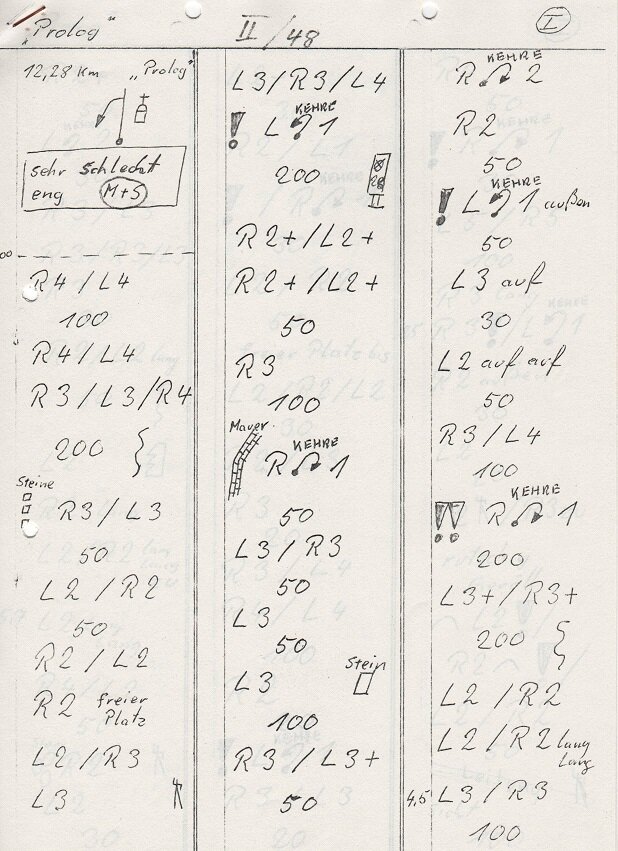 "Prolog"
II/48
I
12,28 Km "Prolog"
sehr schlecht
eng M+S
00
R4/L4
100
R4/L4
R3/L3/R4
200
Steine
R3/L3
50
L2/R2
50
R2/L2
R2 freier
Platz
L2/R3
L3
L3/R3/L4
KEHRE
! L 1
200
II
R2+/L2+
R2+/L2+
50
R3
100
Mauer
KEHRE
R 1
50
L3/R3
50
L3
50
L3 Stein
100
R3/L3+
50
KEHRE
R 2
R2
50
KEHRE
! L 1 außen
50
L3 auf
30
L2 auf auf
50
R3/L4
100
KEHRE
!! R 1
200
L3+/R3+
200
L2/R2
L2/R2 lang
lang
4,5 L3/R3
100